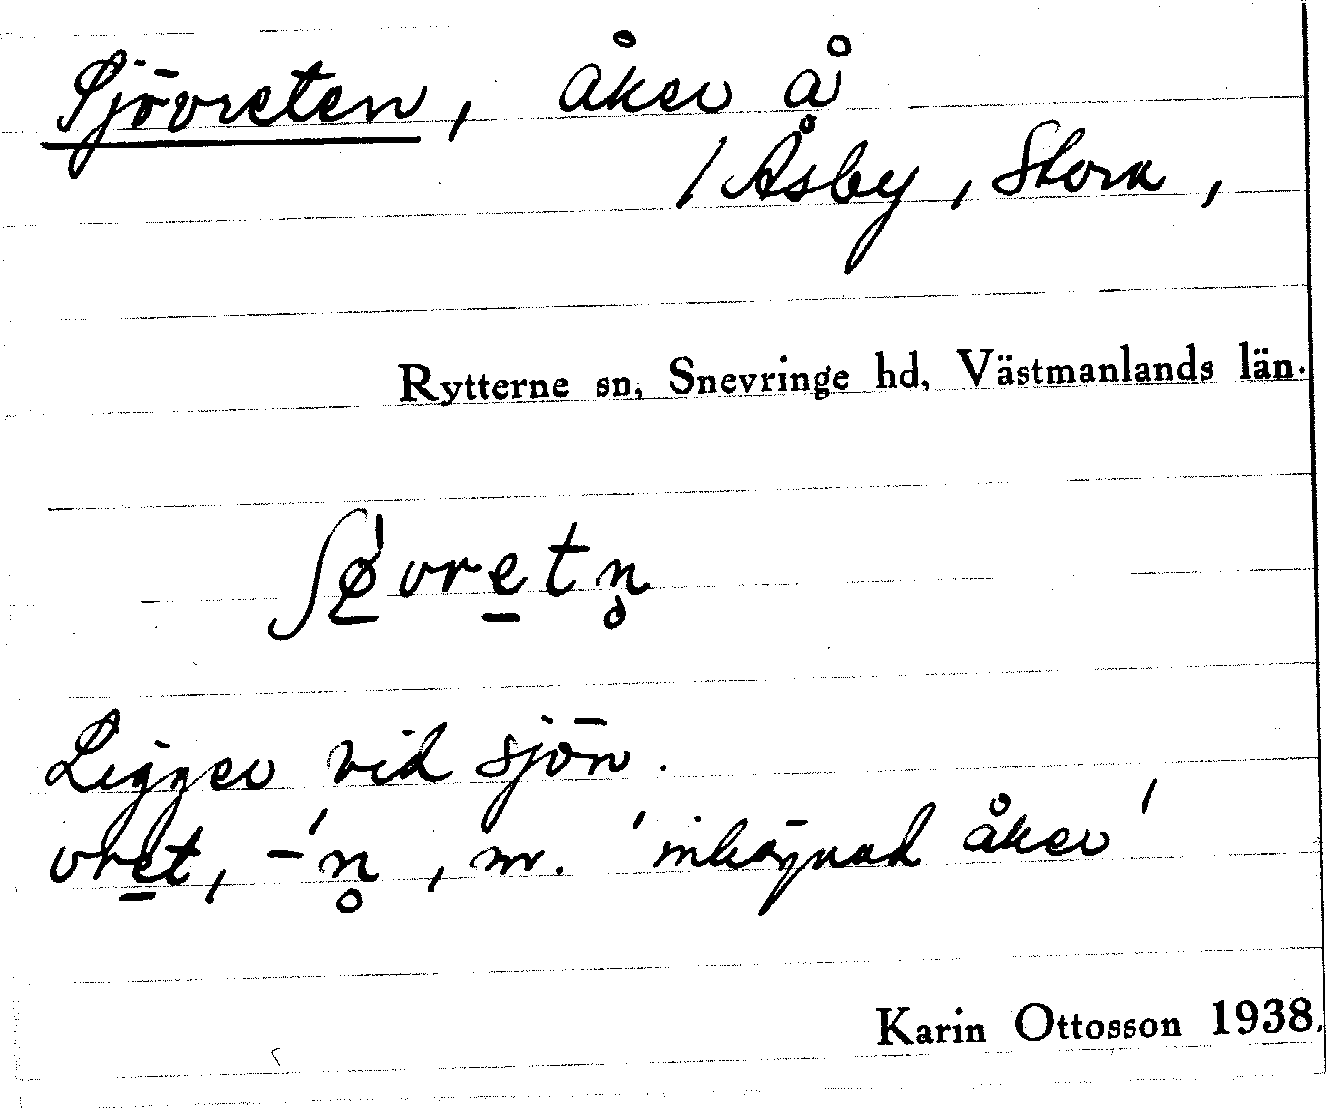 Sjövreten, åker å
/ Åsby, Stora,
Rytterne sn, Snevringe hd, Västmanlands län.
ʃø̠ˈvre̠tn̥
Ligger vid sjön.
vre̠t, -ˈn̥, m. 'inhägnad åker'
Karin Ottosson 1938.